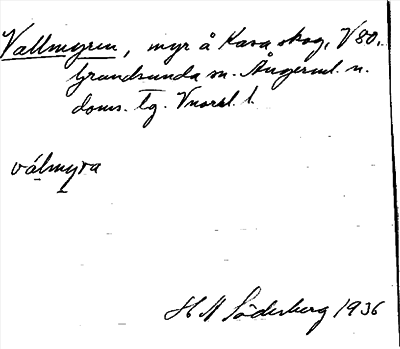 Vallmyren, myr å Kasa skog, V 80.
Grundsunda sn. Ångerml. n.
doms. Tg. Vnorrl. l.
válmyra
H M Söderberg 1936